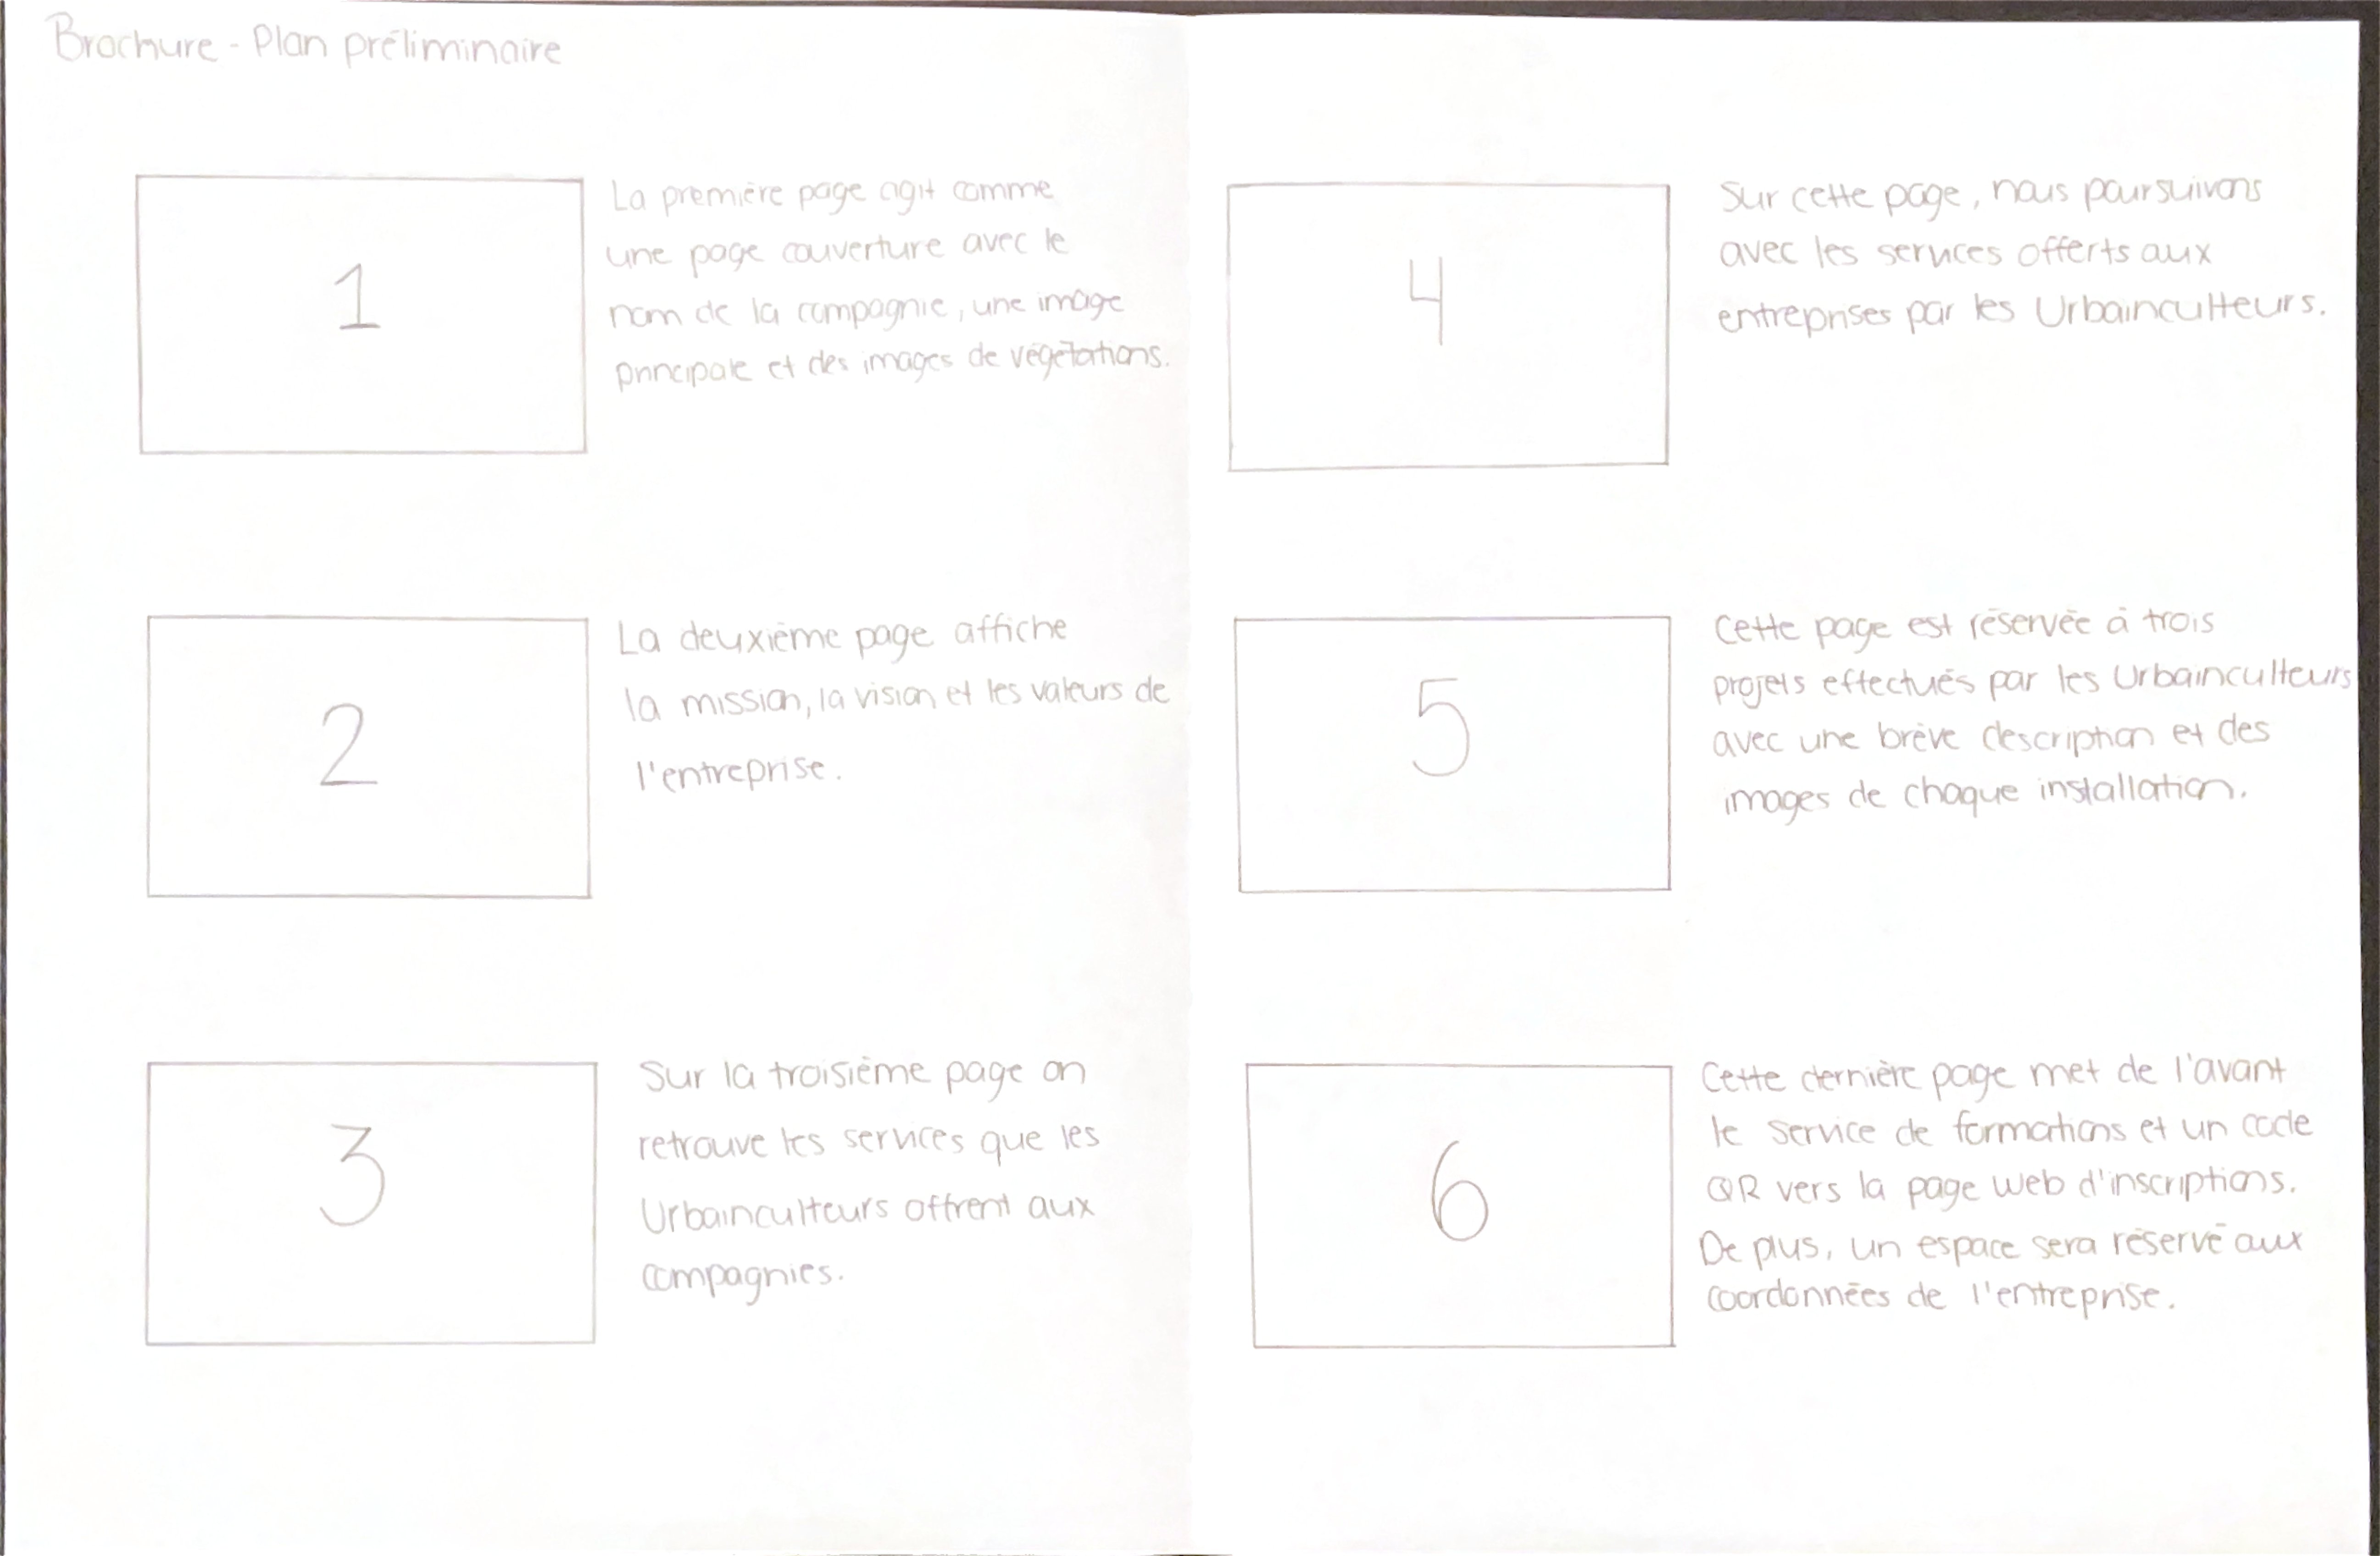 Brochure - Plan préliminaire
1
La première page agit comme
une page couverture avec le
nom de la compagnie, une image
principale et des images de végétations.
2
La deuxième page affiche
la mission, la vision et les valeurs de
l'entreprise.
3
Sur la troisième page on
retrouve les services que les
Urbainculteurs offrent aux
compagnies.
4
Sur cette page, nous poursuivons
avec les services offerts aux
entreprises par les Urbainculteurs.
5
Cette page est réservée à trois
projets effectués par les Urbainculteurs
avec une brève description et des
images de chaque installation.
6
Cette dernière page met de l'avant
le service de formations et un code
QR vers la page web d'inscriptions.
De plus, un espace sera réservé aux
coordonnées de l'entreprise.